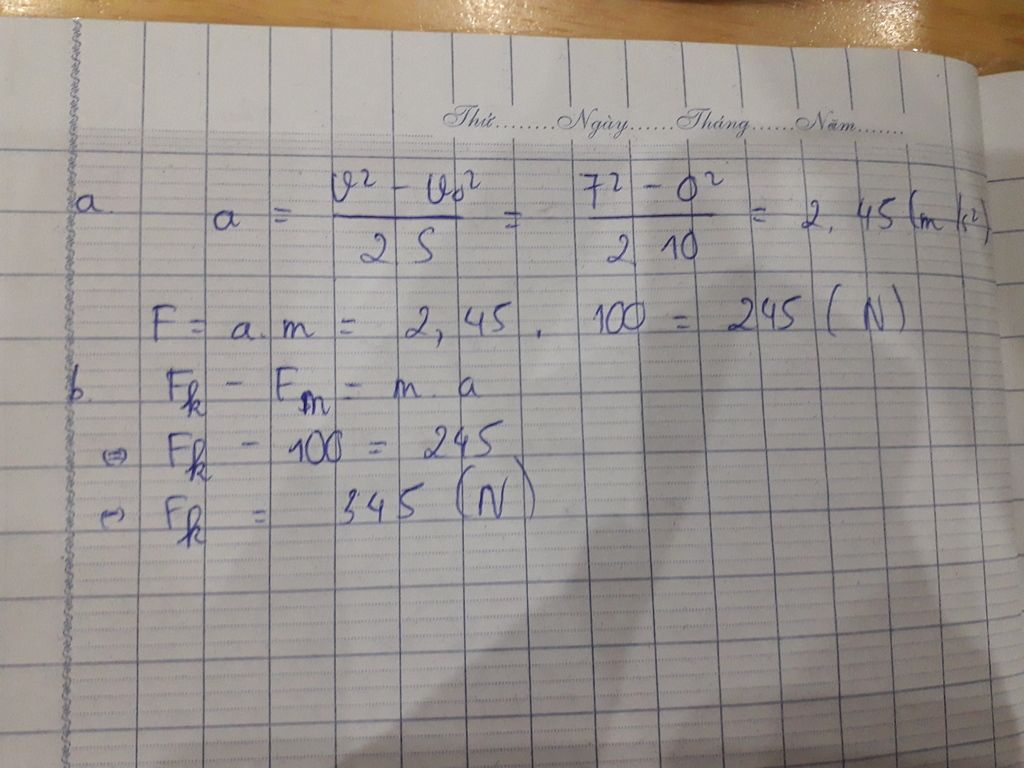 Thứ........Ngày......Tháng......Năm.......
a. a = (v² - v₀²) / (2 S) = (7² - 0²) / (2 10) = 2,45 (m/s²)
F = a.m = 2,45 . 100 = 245 (N)
b. Fk - Fm = m.a
⇔ Fk - 100 = 245
⇔ Fk = 345 (N)